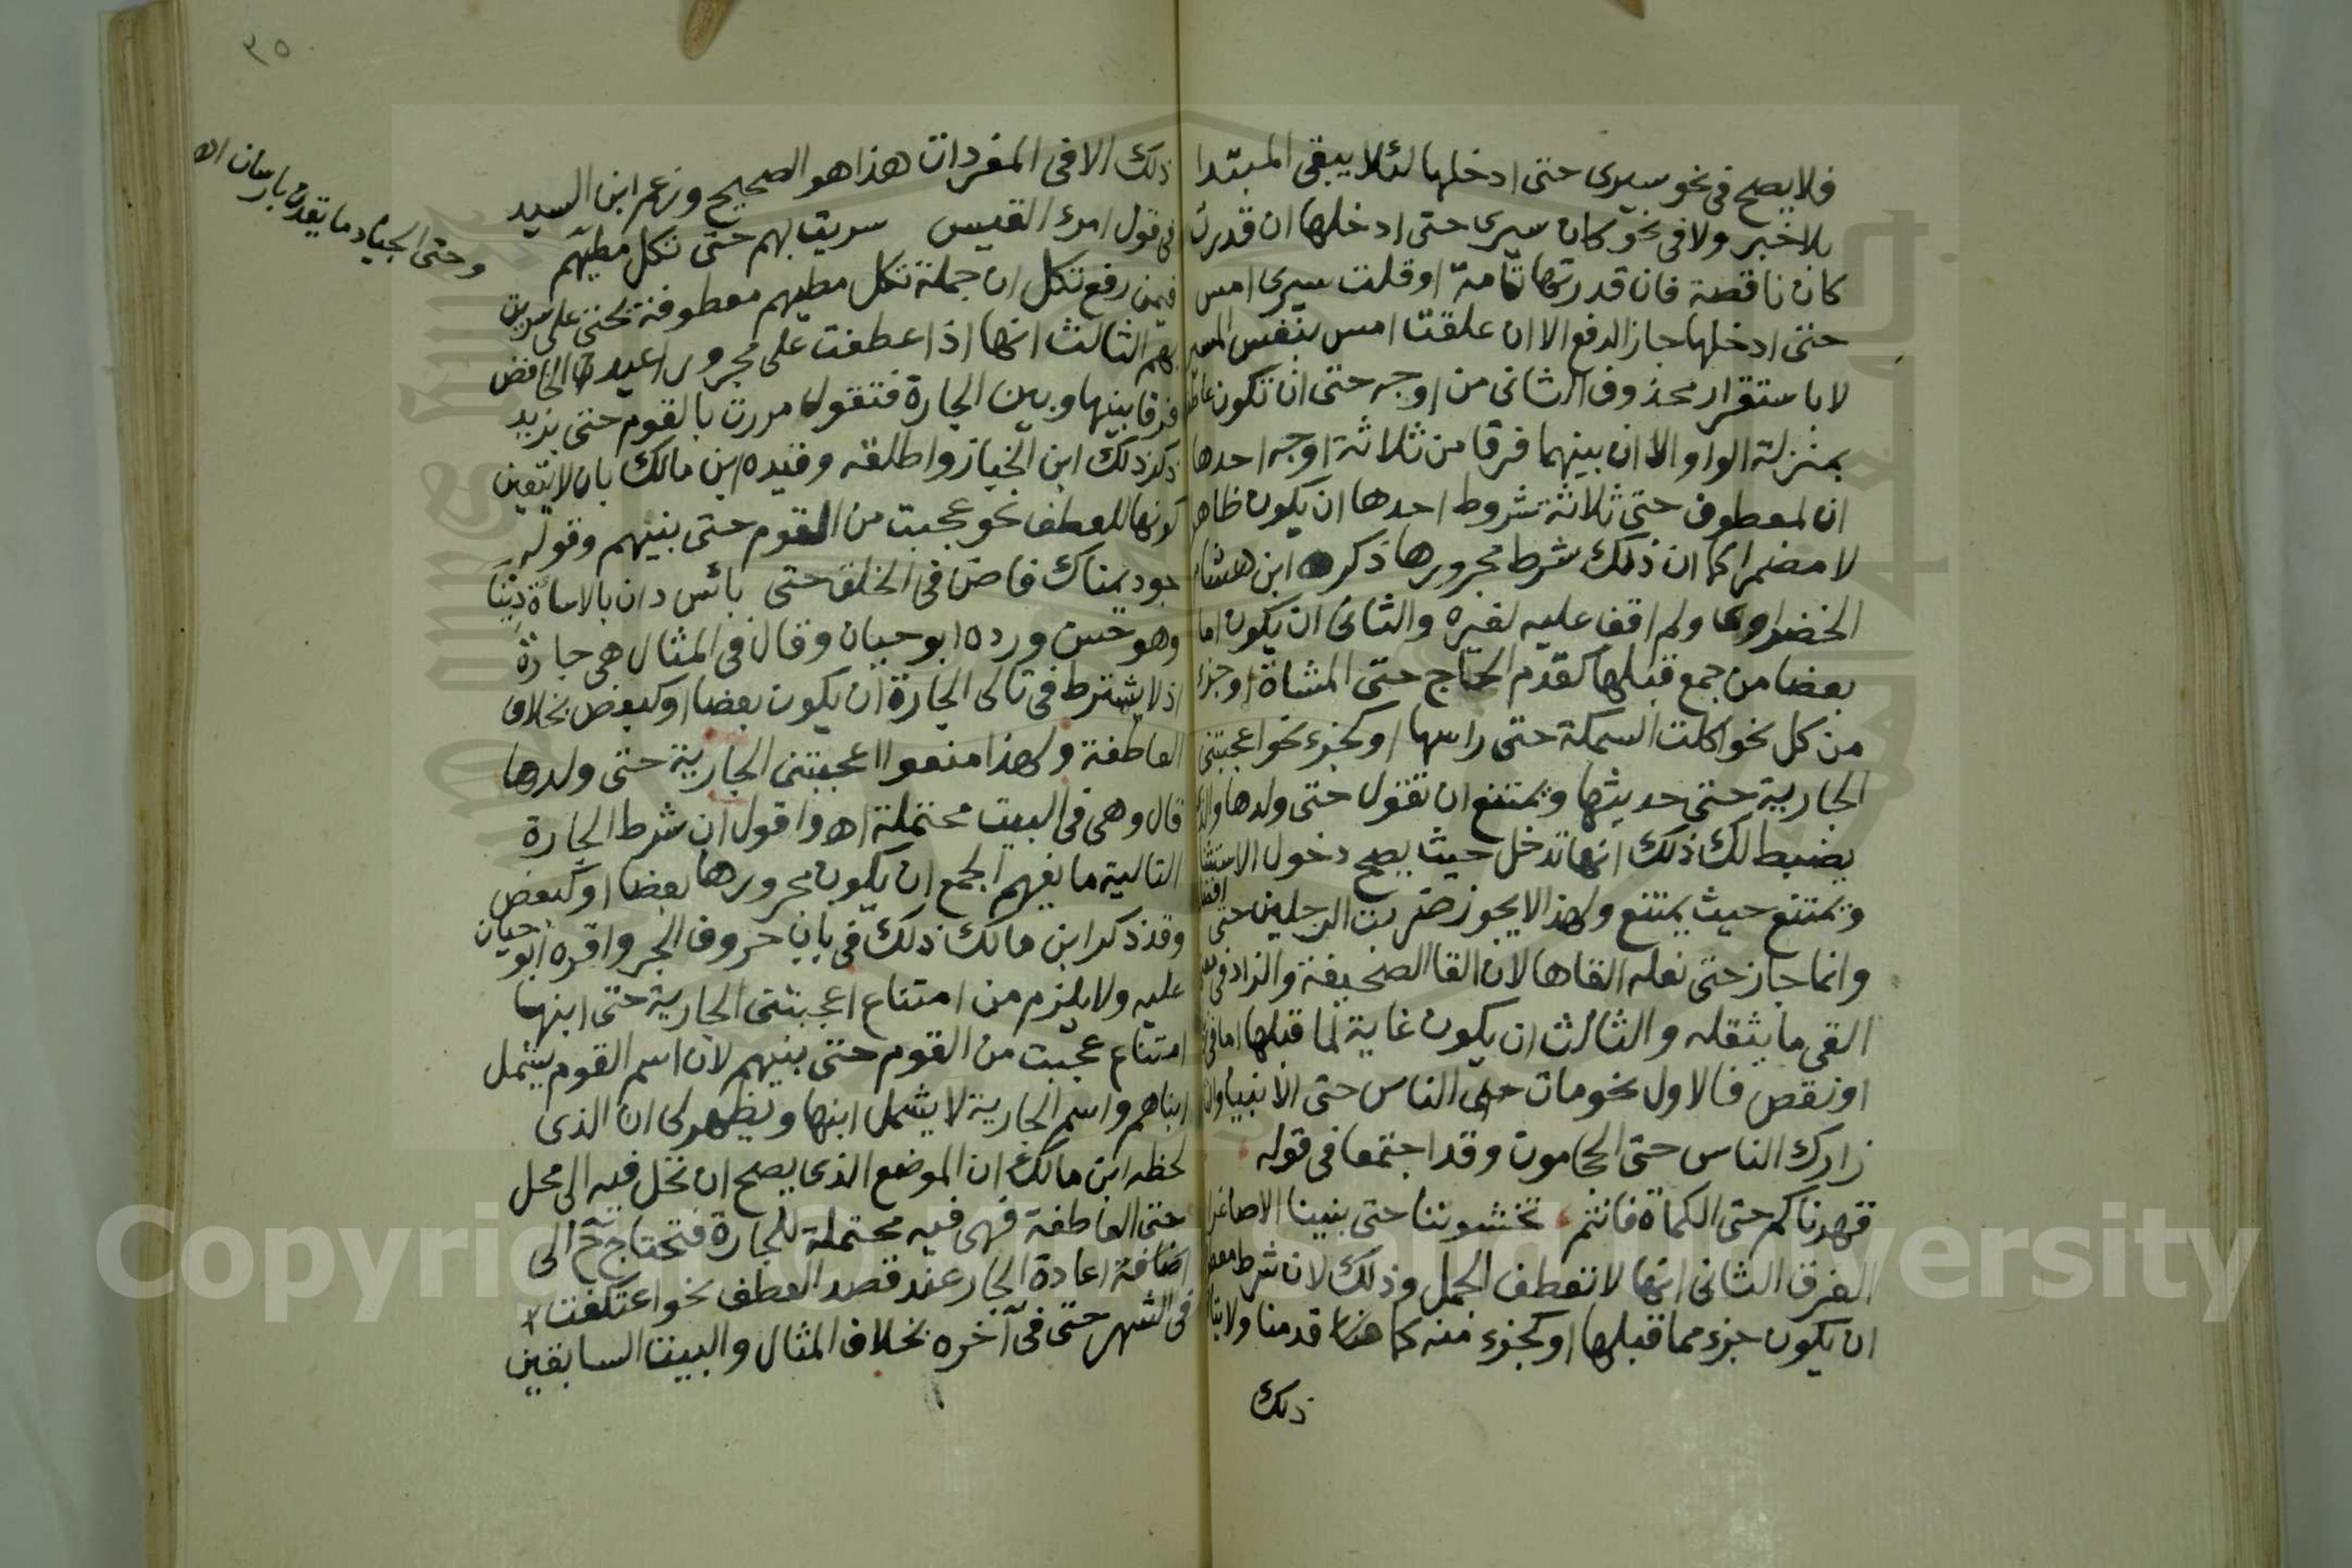 فلا يصح فى نحو سيرى حتى ادخلها لئلا يبقى المبتدا
بلا خبر ولا فى نحو كان سيرى حتى ادخلها ان قدرت
كان ناقصة فان قدرتها تامة او قلت سيرى امس
حتى ادخلها جاز الرفع الا ان علقت امس بنفس السير
لا باستقرار محذوف الثانى من اوجه حتى ان تكون عاطفة
بمنزلة الواو الا ان بينهما فرقا من ثلاثة اوجه احدها
ان لمعطوف حتى ثلاثة شروط احدها ان يكون ظاهرا
لا مضمرا كما ان ذلك شرط مجرورها ذكره ابن هشام
الخضراوى ولم اقف عليه لغيره والثانى ان يكون اما
بعضا من جمع قبلها كقدم الحاج حتى المشاة او جزء
من كل نحو اكلت السمكة حتى راسها او كجزء نحو اعجبتنى
الجارية حتى حديثها ويمتنع ان تقول حتى ولدها والذى
يضبط لك ذلك انها تدخل حيث يصح دخول الاستثنا
ويمتنع حيث يمتنع ولهذا لا يجوز ضربت الرجلين حتى افضلهما
وانما جاز حتى نعله القاها لان القا الصحيفة والزاد فى معنى
القى ما يثقله والثالث ان يكون غاية لما قبلها اما فى
او نقص فالاول نحو مات الناس حتى الانبيا والثانى
زارك الناس حتى الحجامون وقد اجتمعا فى قوله
قهرناكم حتى الكماة فانتم تخشوننا حتى بنينا الاصاغرا
الفرق الثانى انها لا تعطف الجمل وذلك لان شرط معطوفها
ان يكون جزء مما قبلها او كجزء منه كما قدمنا ولا يتاتى
ذلك
٣٥
ذلك الا فى المفردات هذا هو الصحيح وزعم ابن السيد
فى قول امرء القيس سريت بهم حتى تكل مطيهم
وحتى الجياد ما يقدن بارسان اه
فيمن رفع تكل ان جملة تكل مطيهم معطوفة بحتى على سريت
بهم الثالث انها اذا عطفت على مجرور اعيد الخافض
فرقا بينها وبين الجارة فتقول مررت بالقوم حتى بزيد
ذكر ذلك ابن الخباز واطلقه وقيده ابن مالك بان لا يتعين
كونها للعطف نحو عجبت من القوم حتى بنيهم وقوله
جود يمناك فاض فى الخلق حتى بائس دان بالاساة دينا
وهو حسن ورده ابو حيان وقال فى المثال هى جارة
اذ لا يشترط فى تالى الجارة ان يكون بعضا او كبعض بخلاف
العاطفة ولهذا منعوا اعجبتنى الجارية حتى ولدها
قال وهى فى البيت محتملة اه واقول ان شرط الجارة
التالية ما يفهم الجمع ان يكون مجرورها بعضا او كبعض
وقد ذكر ابن مالك ذلك فى باب حروف الجر واقره ابو حيان
عليه ولا يلزم من امتناع اعجبتنى الجارية حتى ابنها
امتناع عجبت من القوم حتى بنيهم لان اسم القوم يشمل
ابناهم واسم الجارية لا يشمل ابنها ويظهر لى ان الذى
لحظه ابن مالك ان الموضع الذى يصح ان تحل فيه الى محل
حتى العاطفة فهى فيه محتملة للجارة فتحتاج ح الى
اضافة اعادة الجار عند قصد العطف نحو اعتكفت
فى الشهر حتى فى آخره بخلاف المثال والبيت السابقين
Copyright © King Saud University